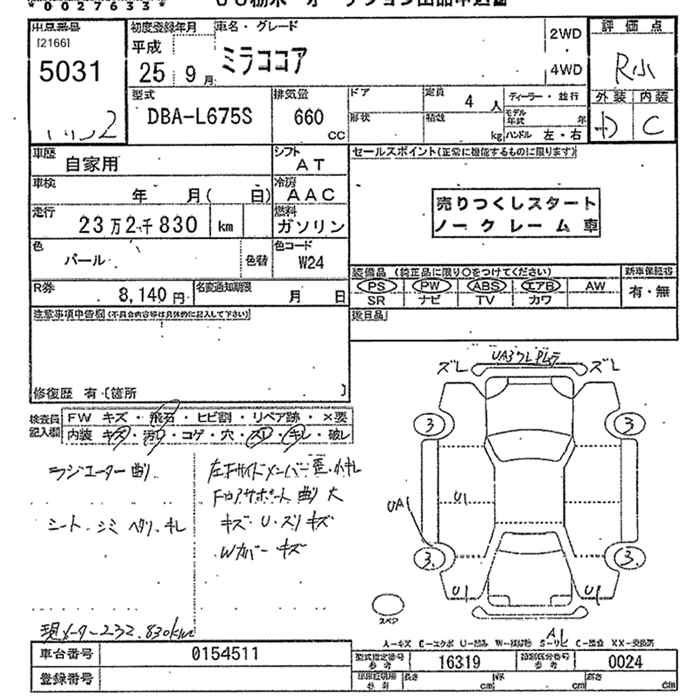 *0027633*
出品番号 初度登録年月 車名・グレード 2WD 評価点
[2166] 平成
5031 25年9月 ミラココア 4WD R
外装 内装
型式 排気量 ドア 定員 4人 ディーラー・並行
DBA-L675S 660 CC 形状 積載 kg モデル年式 年 D C
ハンドル 左・右
車歴 自家用 シフト AT セールスポイント(正常に機能するものに限ります)
車検 年 月( 日) 冷房 AAC
売りつくしスタート
ノークレーム車
走行 23万2千830 km 燃料 ガソリン
色 パール 色替 色コード W24
装備品 (純正品に限り○をつけてください) 新車保証書
PS PW ABS エアB AW 有・無
SR ナビ TV カワ
R券 8,140円 名変通知期限 月 日
注意事項申告欄(不具合内容等は具体的に記入して下さい)
修復歴 有 [箇所 ]
検査員記入欄 FW キズ・飛石・ヒビ割・リペア跡・×要
内装 キズ・汚れ・コゲ・穴・スリ・キレ・破レ
ズレ UA3 ワレ ズレ
3 3
ラジエーター曲り
シート シミ ヘタリ キレ
左下サイドメンバー
下 サポート 曲り 大
キズ・U・スリキズ
Wカバー キズ
UA1 U1
3 3
U1 U1
スペア
現メーター232,830km
A-キズ E-エクボ U-凹み W-補修跡 S-サビ C-腐食 XX-交換済
車台番号 0154511 型式指定番号 参考 16319 類別区分番号 参考 0024
登録番号 長さ cm 幅 cm 高さ cm